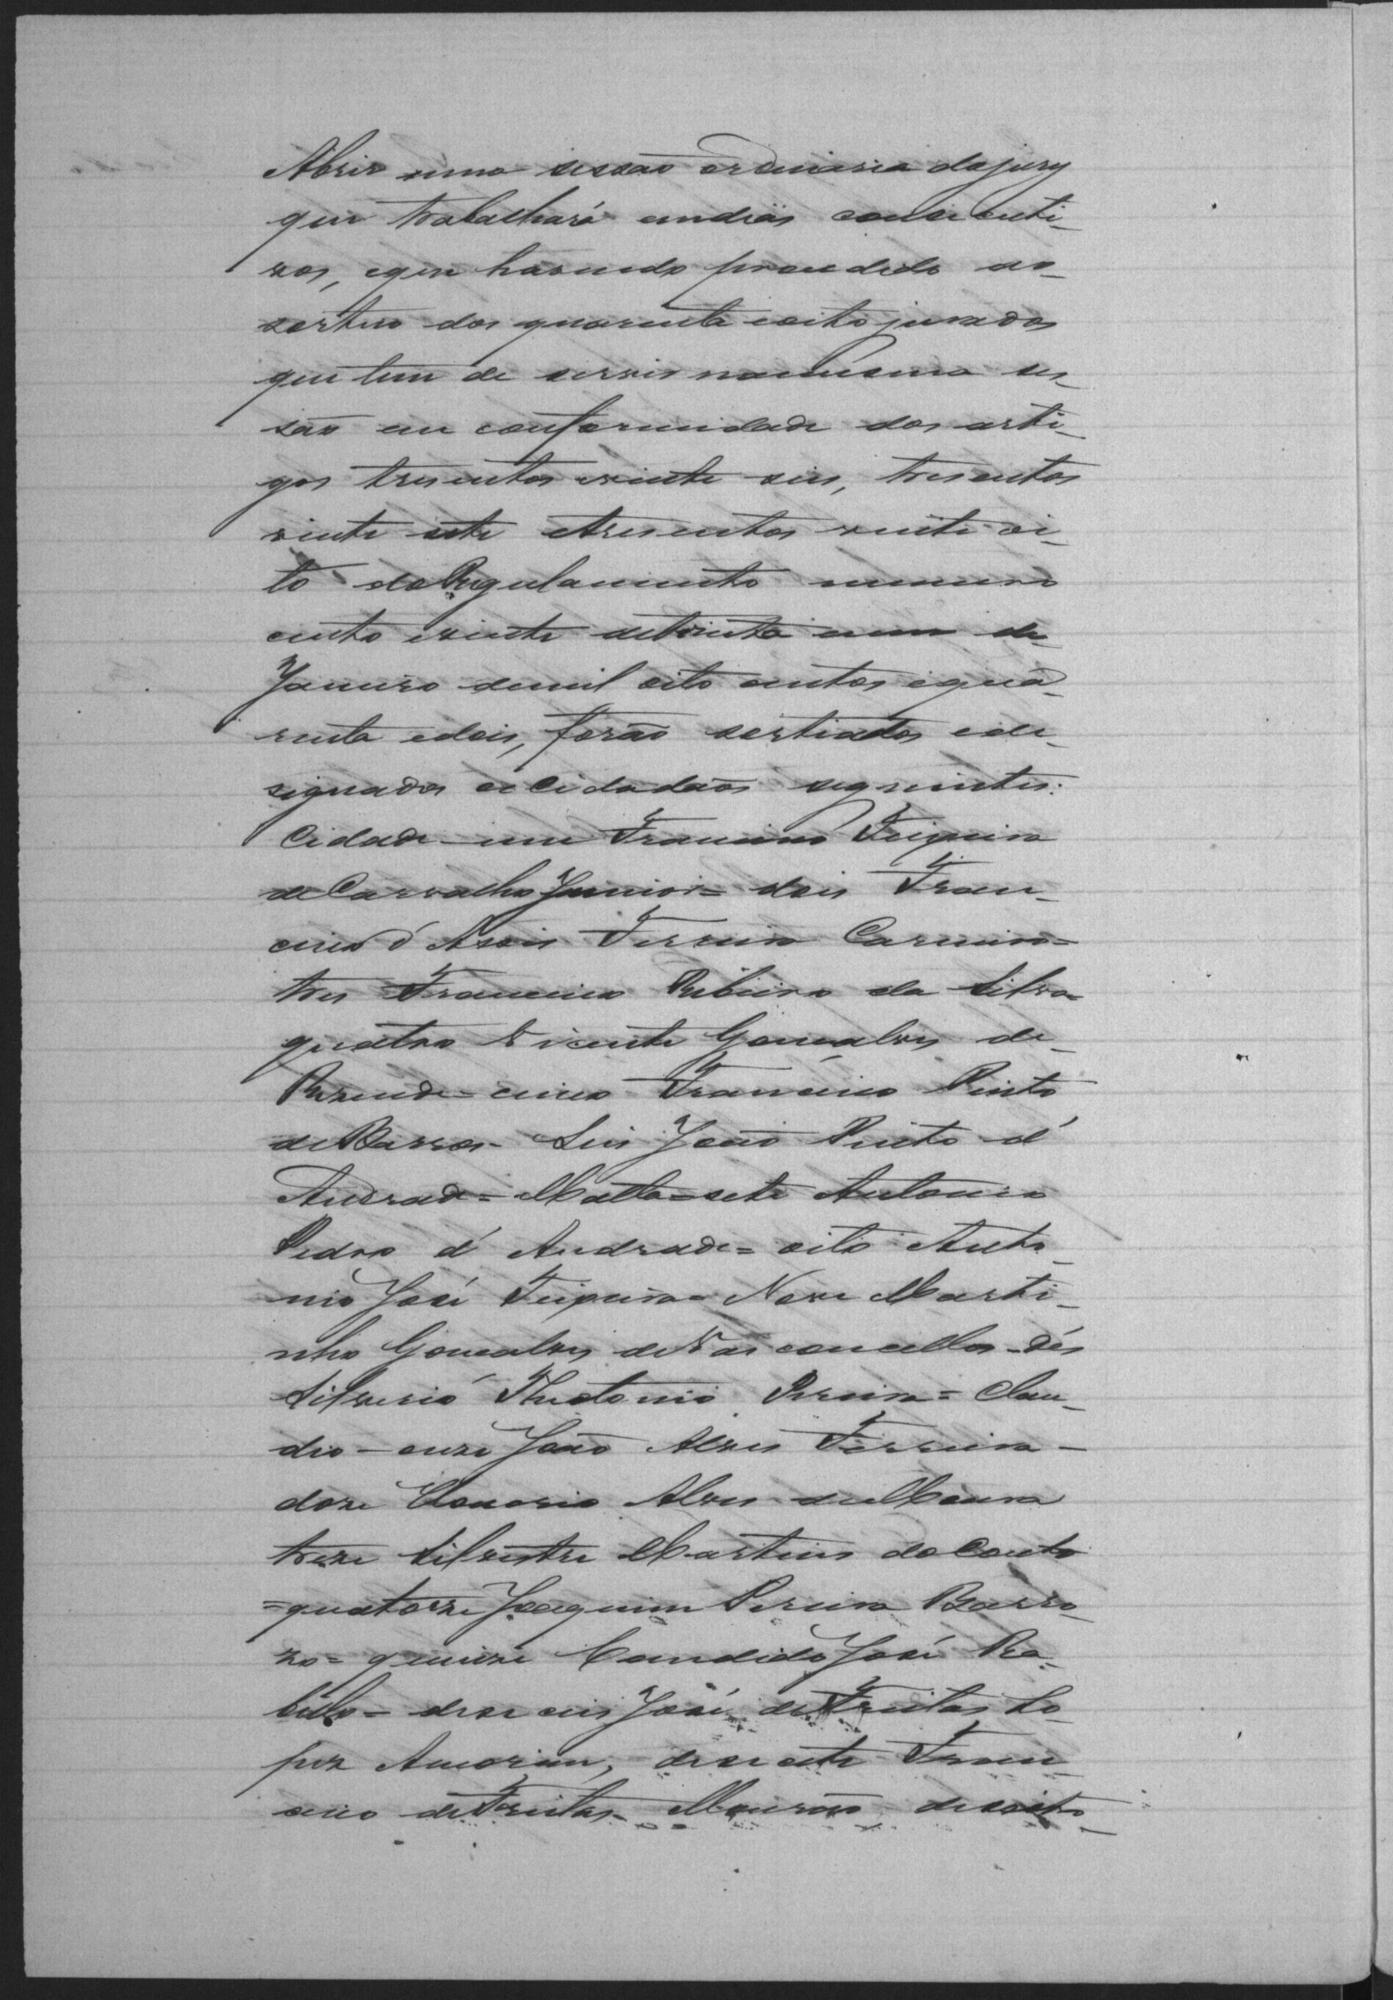 Abrir uma sessão ordinaria do jury
que trabalhará em dias consecuti-
vos, e que havendo procedido ao
sorteio dos quarenta e oito jurados
que tem de servir na mesma ses-
são em conformidade dos arti-
gos tresentos vinte seis, tresentos
vinte sete e tresentos vinte oi-
to do Regulamento numero
cento e vinte de trinta um de
Janeiro de mil oito centos e qua-
renta e dois, forão sortiados e de-
signados os Cidadãos seguintes:
Cidade - um Francisco Teixeira
de Carvalho Junior = dois Fran-
cisco d'Assis Ferreira Carneiro =
tres Francisco Ribeiro da Silva =
quatro Vicente Gonçalves de
Rezende = cinco Francisco Pinto
de Barros - Seis João Pinto d'
Andrade = Matta = sete Antonio
Pedro d'Andrade = oito Anto-
nio José Teixeira = Nove Marti-
nho Gonçalves de Vasconcellos - dés
Silverio Theotonio Pereira = Clau-
dio - onze João Alves Ferreira -
doze Honorio Alves de Moura
treze Silvestre Martins do Couto
= quatorze Joaquim Pereira Barro-
zo = quinze Candido José Ra-
bello = dezeseis José de Freitas Lo-
pez Amorim, dezesete Fran-
cisco de Freitas Mourão, dezoito